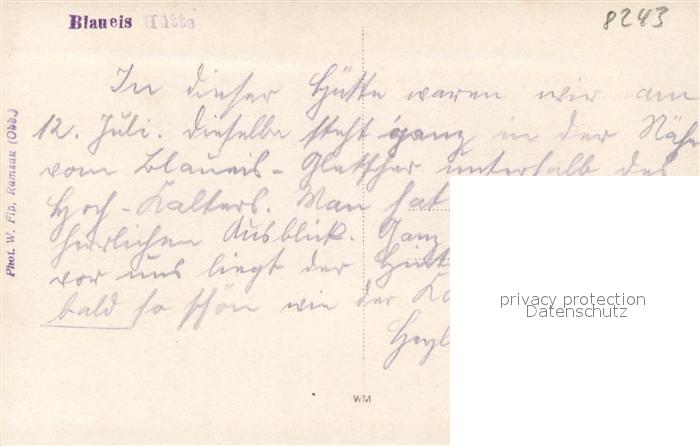 Blaueis Hütte
8243
In dieser Hütte waren wir am
12. Juli. Dieselbe steht ganz in der Nähe
vom Blaueis-Gletscher unterhalb des
Hoch-Kalters. Man hat
herrlichen Ausblick. Ganz
vor uns liegt der
bald so schön wie der
Phot. W. Fip, Ramsau (Obb.)
privacy protection
Datenschutz
WM